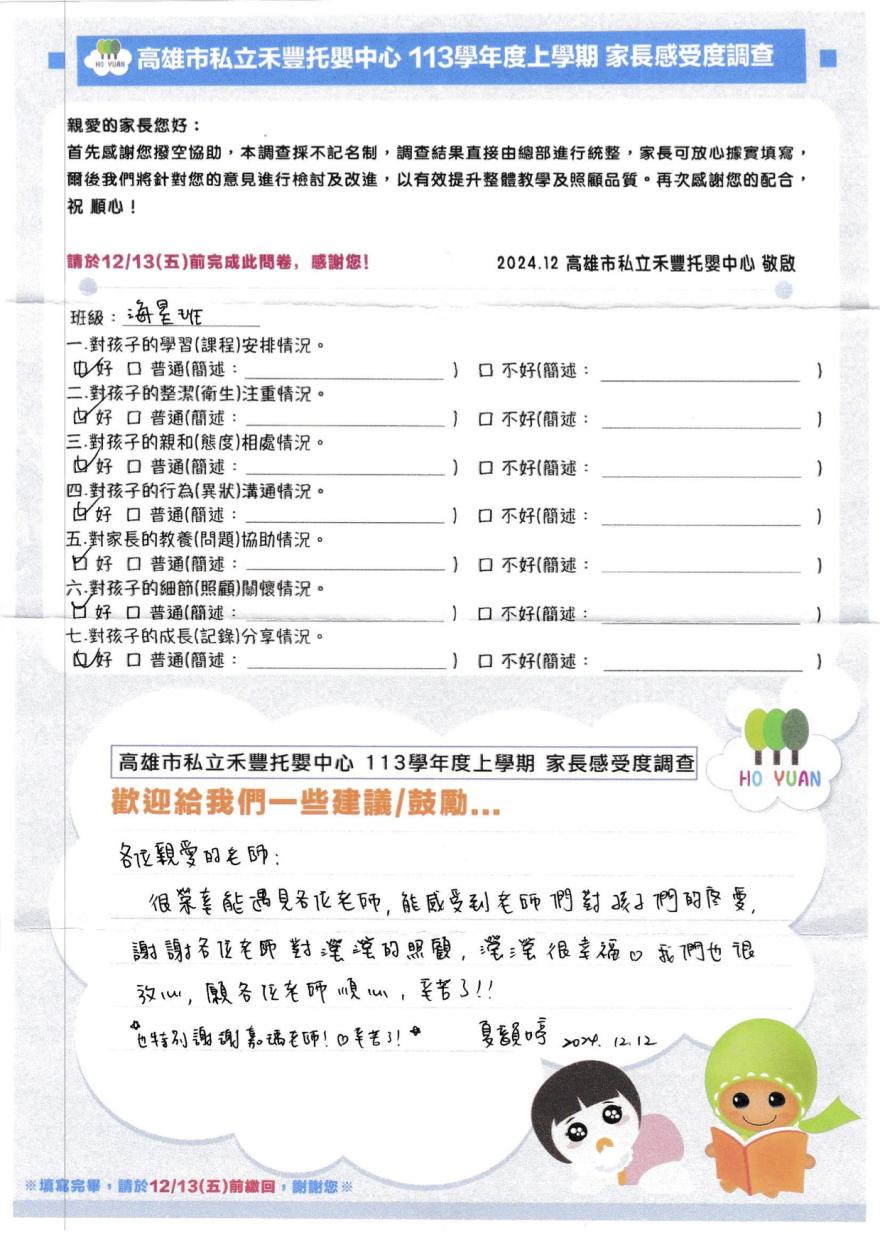 HO YUAN 高雄市私立禾豐托嬰中心 113學年度上學期 家長感受度調查
親愛的家長您好：
首先感謝您撥空協助，本調查採不記名制，調查結果直接由總部進行統整，家長可放心據實填寫，
爾後我們將針對您的意見進行檢討及改進，以有效提升整體教學及照顧品質。再次感謝您的配合，
祝 順心！
請於12/13(五)前完成此問卷，感謝您!
2024.12 高雄市私立禾豐托嬰中心 敬啟
班級：海星班
一.對孩子的學習(課程)安排情況。
☑ 好 口 普通(簡述：) 口 不好(簡述：)
二.對孩子的整潔(衛生)注重情況。
☑ 好 口 普通(簡述：) 口 不好(簡述：)
三.對孩子的親和(態度)相處情況。
☑ 好 口 普通(簡述：) 口 不好(簡述：)
四.對孩子的行為(異狀)溝通情況。
☑ 好 口 普通(簡述：) 口 不好(簡述：)
五.對家長的教養(問題)協助情況。
☑ 好 口 普通(簡述：) 口 不好(簡述：)
六.對孩子的細節(照顧)關懷情況。
☑ 好 口 普通(簡述：) 口 不好(簡述：)
七.對孩子的成長(記錄)分享情況。
☑ 好 口 普通(簡述：) 口 不好(簡述：)
高雄市私立禾豐托嬰中心 113學年度上學期 家長感受度調查
HO YUAN
歡迎給我們一些建議/鼓勵...
各位親愛的老師：
很榮幸能遇見各位老師，能感受到老師們對孩子們的疼愛，
謝謝各位老師對瀅瀅的照顧，瀅瀅很幸福♡我們也很
放心，願各位老師順心，辛苦了!!
也特別謝謝嘉瑀老師!♡辛苦了! 夏韻 2024.12.12
※填寫完畢，請於12/13(五)前繳回，謝謝您※